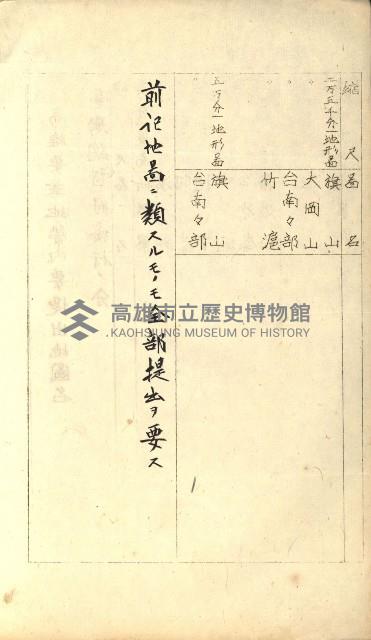 縮尺 圖名
二万五千分一地形圖 旗山
〃 大岡山
〃 台南々部
〃 竹滬
五万分一地形圖 旗山
〃 台南々部
前記地圖ニ類スルモノモ全部提出ヲ要ス
高雄市立歷史博物館
KAOHSIUNG MUSEUM OF HISTORY